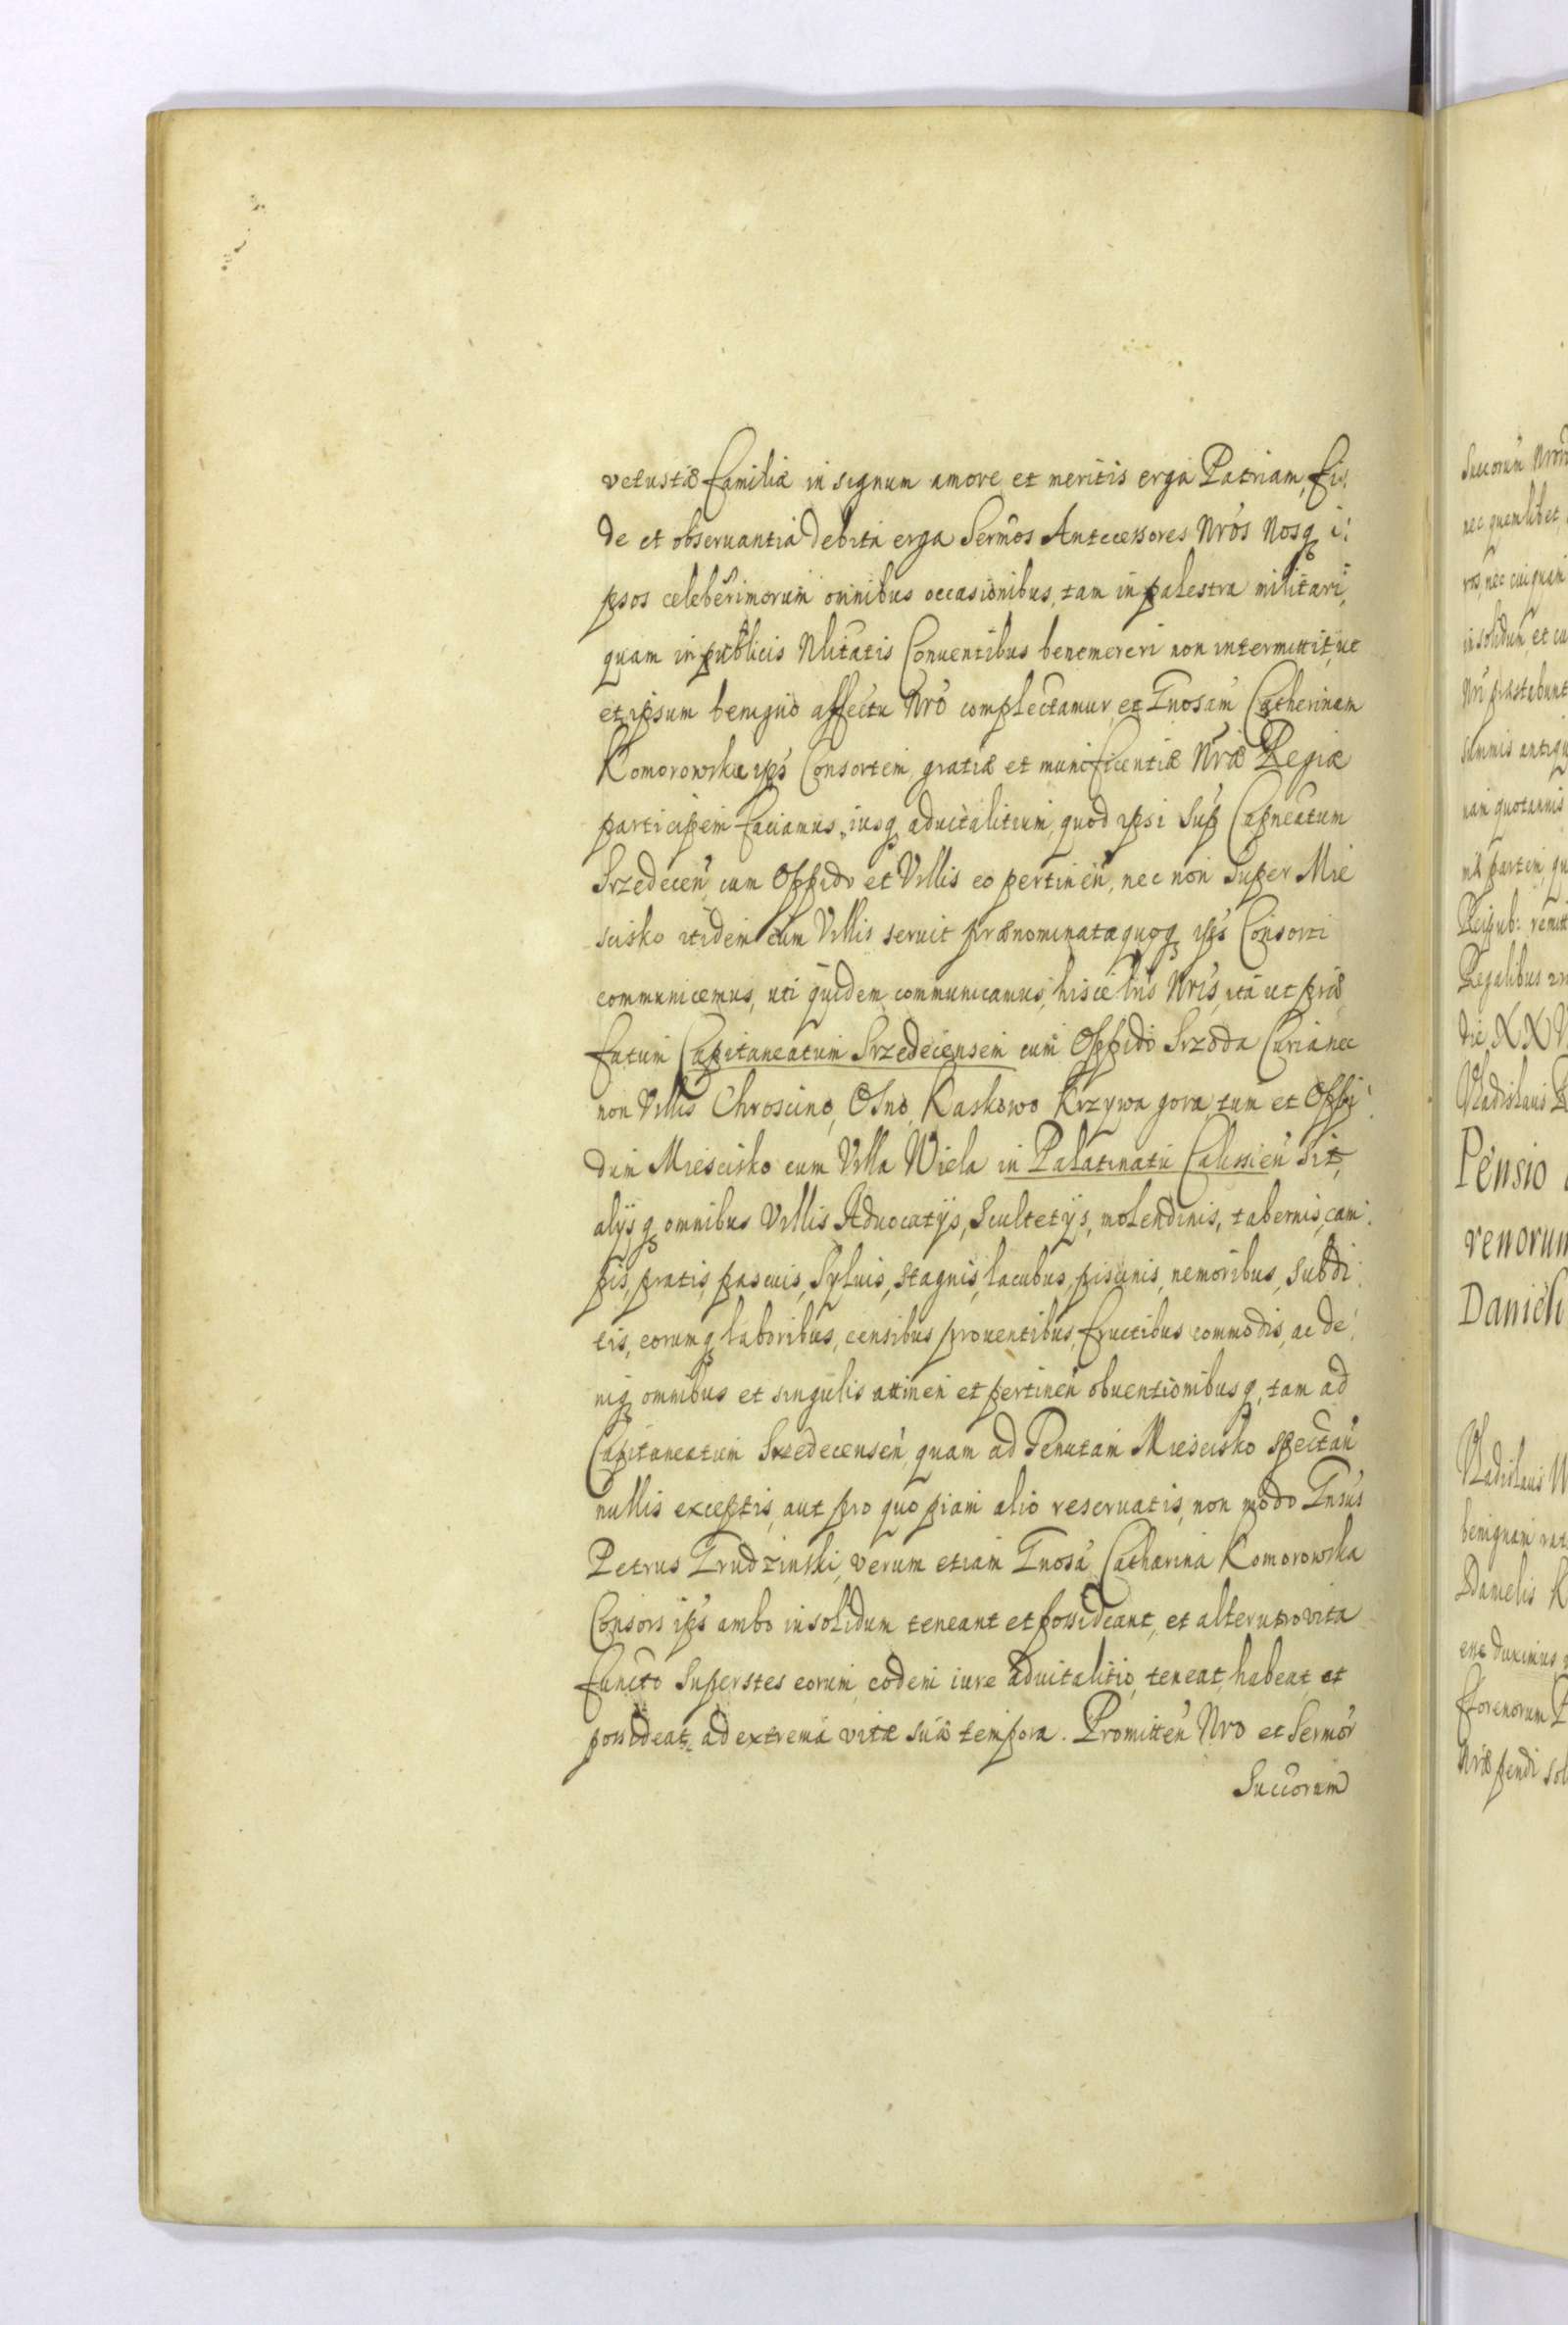 vetustæ Familiæ in signum amore et meritis erga Patriam, fi:
de et obseruantia debita erga Sermos Antecessores Nros Nosq i:
psos celeberimorum omnibus occasionibus, tam in palestra militari,
quam in publicis Nlitatis Conuentibus benemereri non intermittit, ut
et ipsum benigno affectu Nro complectamur, et Gnosam Catherinam
Komorowska ips Consortem, gratiæ et munificentiæ Nræ Regiæ
participem faciamus, iusq aduitalitium, quod ipsi Sup Capneatum
Srzedecen cum Oppido et Villis eo pertinen, nec non Super Mie
scisko itidem cum Villis seruit prænominatæ quoq ips Consorti
communicemus, uti quidem communicamus, hisce lris Nris, ita ut præ
fatum Capitaneatum Srzedecensem cum Oppido Srzoda Curia nec
non Villis Chroscino, Osno, Kaskowo Krzywa gora, tum et Oppi:
dum Miescisko cum Villa Wiela in Palatinatu Calissien sit,
alysq omnibus Villis Aduocatys, Scultetys, molendinis, tabernis, cam:
pis, pratis, pascuis, Syluis, stagnis, lacubus, piscinis, nemoribus, Subdi:
tis, eorumq laboribus, censibus prouentibus, fructibus commodis, ac de:
niq omnibus et singulis attinen et pertinen obuentionibusq, tam ad
Capitaneatum Srzedecensem, quam ad Tenutam Miescisko spectan
nullis exceptis, aut pro quopiam alio reseruatis, non modo Gnsus
Petrus Trudzinski, verum etiam Gnosa Catharina Komorowska
Consors ips ambo insolidum teneant et possideant, et alterutro vita
functo Superstes eorum, eodem iure aduitalitio, teneat, habeat, et
possideat, ad extrema vitæ suæ tempora. Promitten Nro et Sermor
Succorum
Pensio
renorum